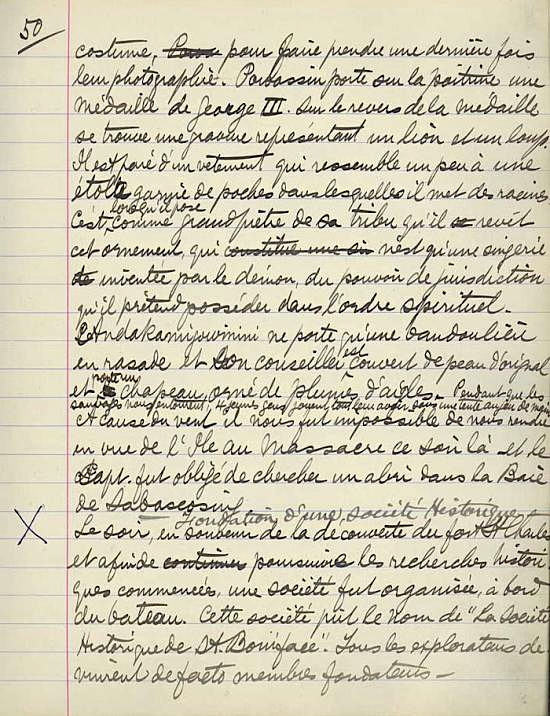 50
costume. Pour pour faire prendre une dernière fois
leur photographie. Powassin porte sur la poitrine une
médaille de George III. Sur le revers de la médaille
se trouve une gravure représentant un lion et un loup.
Il est paré d'un vetement qui ressemble un peu à une
étole garnie de poches dans lesquelles il met des racines
lorsqu'il pose
C'est comme grand prêtre de sa tribu qu'il revêt
cet ornement, qui constitue une n'est qu'une singerie
inventée par le démon, du pouvoir de jurisdiction
qu'il prétend posséder dans l'ordre spirituel.
Andakamigowinini ne porte qu'une bandoulière
en rasade et son conseiller est couvert de peau d'orignal
et porte un chapeau orné de plumes d'aigles. Pendant que les
sauvages nous entourent, 4 jeunes gens jouent tout leur avoir sous une tente au jeu de main
A cause du vent il nous fut impossible de nous rendre
en vue de l'Ile au Massacre ce soir là et le
Capt. fut obligé de chercher un abri dans la Baie
de Sabascosing
Fondation d'une société Historique
Le soir, en souvenir de la découverte du fort St Charles
et afin de continuer poursuivre les recherches histori
ques commencées, une société fut organisée, à bord
du bateau. Cette société prit le nom de "La Société
Historique de St. Boniface". Tous les explorateurs de
vinrent de facto membres fondateurs —